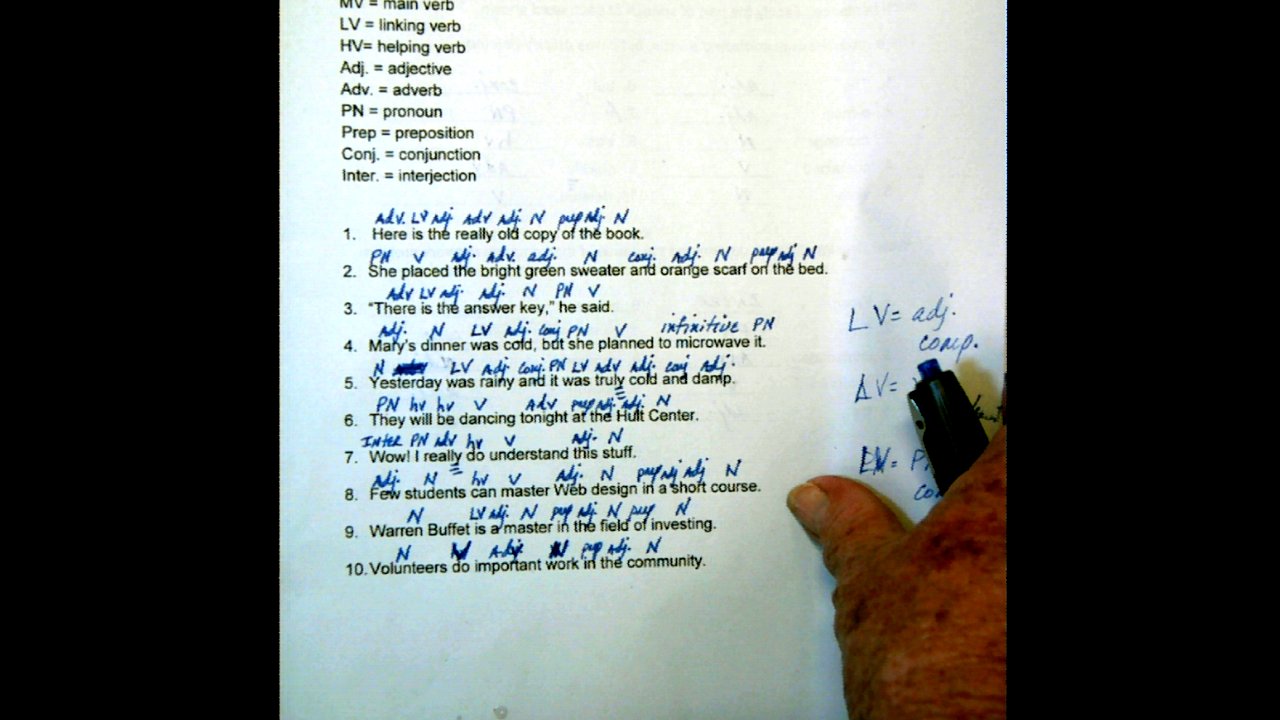 MV = main verb
LV = linking verb
HV= helping verb
Adj. = adjective
Adv. = adverb
PN = pronoun
Prep = preposition
Conj. = conjunction
Inter. = interjection
Adv. LV Adj. Adv Adj. N prep Adj. N
1. Here is the really old copy of the book.
PN V adj. Adv. adj. N conj. Adj. N prep Adj N
2. She placed the bright green sweater and orange scarf on the bed.
Adv LV Adj. Adj. N PN V
3. “There is the answer key,” he said.
Adj. N LV Adj. conj PN V infinitive PN
4. Mary's dinner was cold, but she planned to microwave it.
N LV Adj. conj. PN LV Adv Adj. conj Adj.
5. Yesterday was rainy and it was truly cold and damp.
PN hv hv V Adv prep Adj. Adj. N
6. They will be dancing tonight at the Hult Center.
INter PN adv hv V Adj. N
7. Wow! I really do understand this stuff.
Adj. N hv V Adj. N prep Adj Adj N
8. Few students can master Web design in a short course.
N LV Adj. N prep Adj. N prep N
9. Warren Buffet is a master in the field of investing.
N V Adj. N prep Adj. N
10. Volunteers do important work in the community.
LV= adj.
comp.